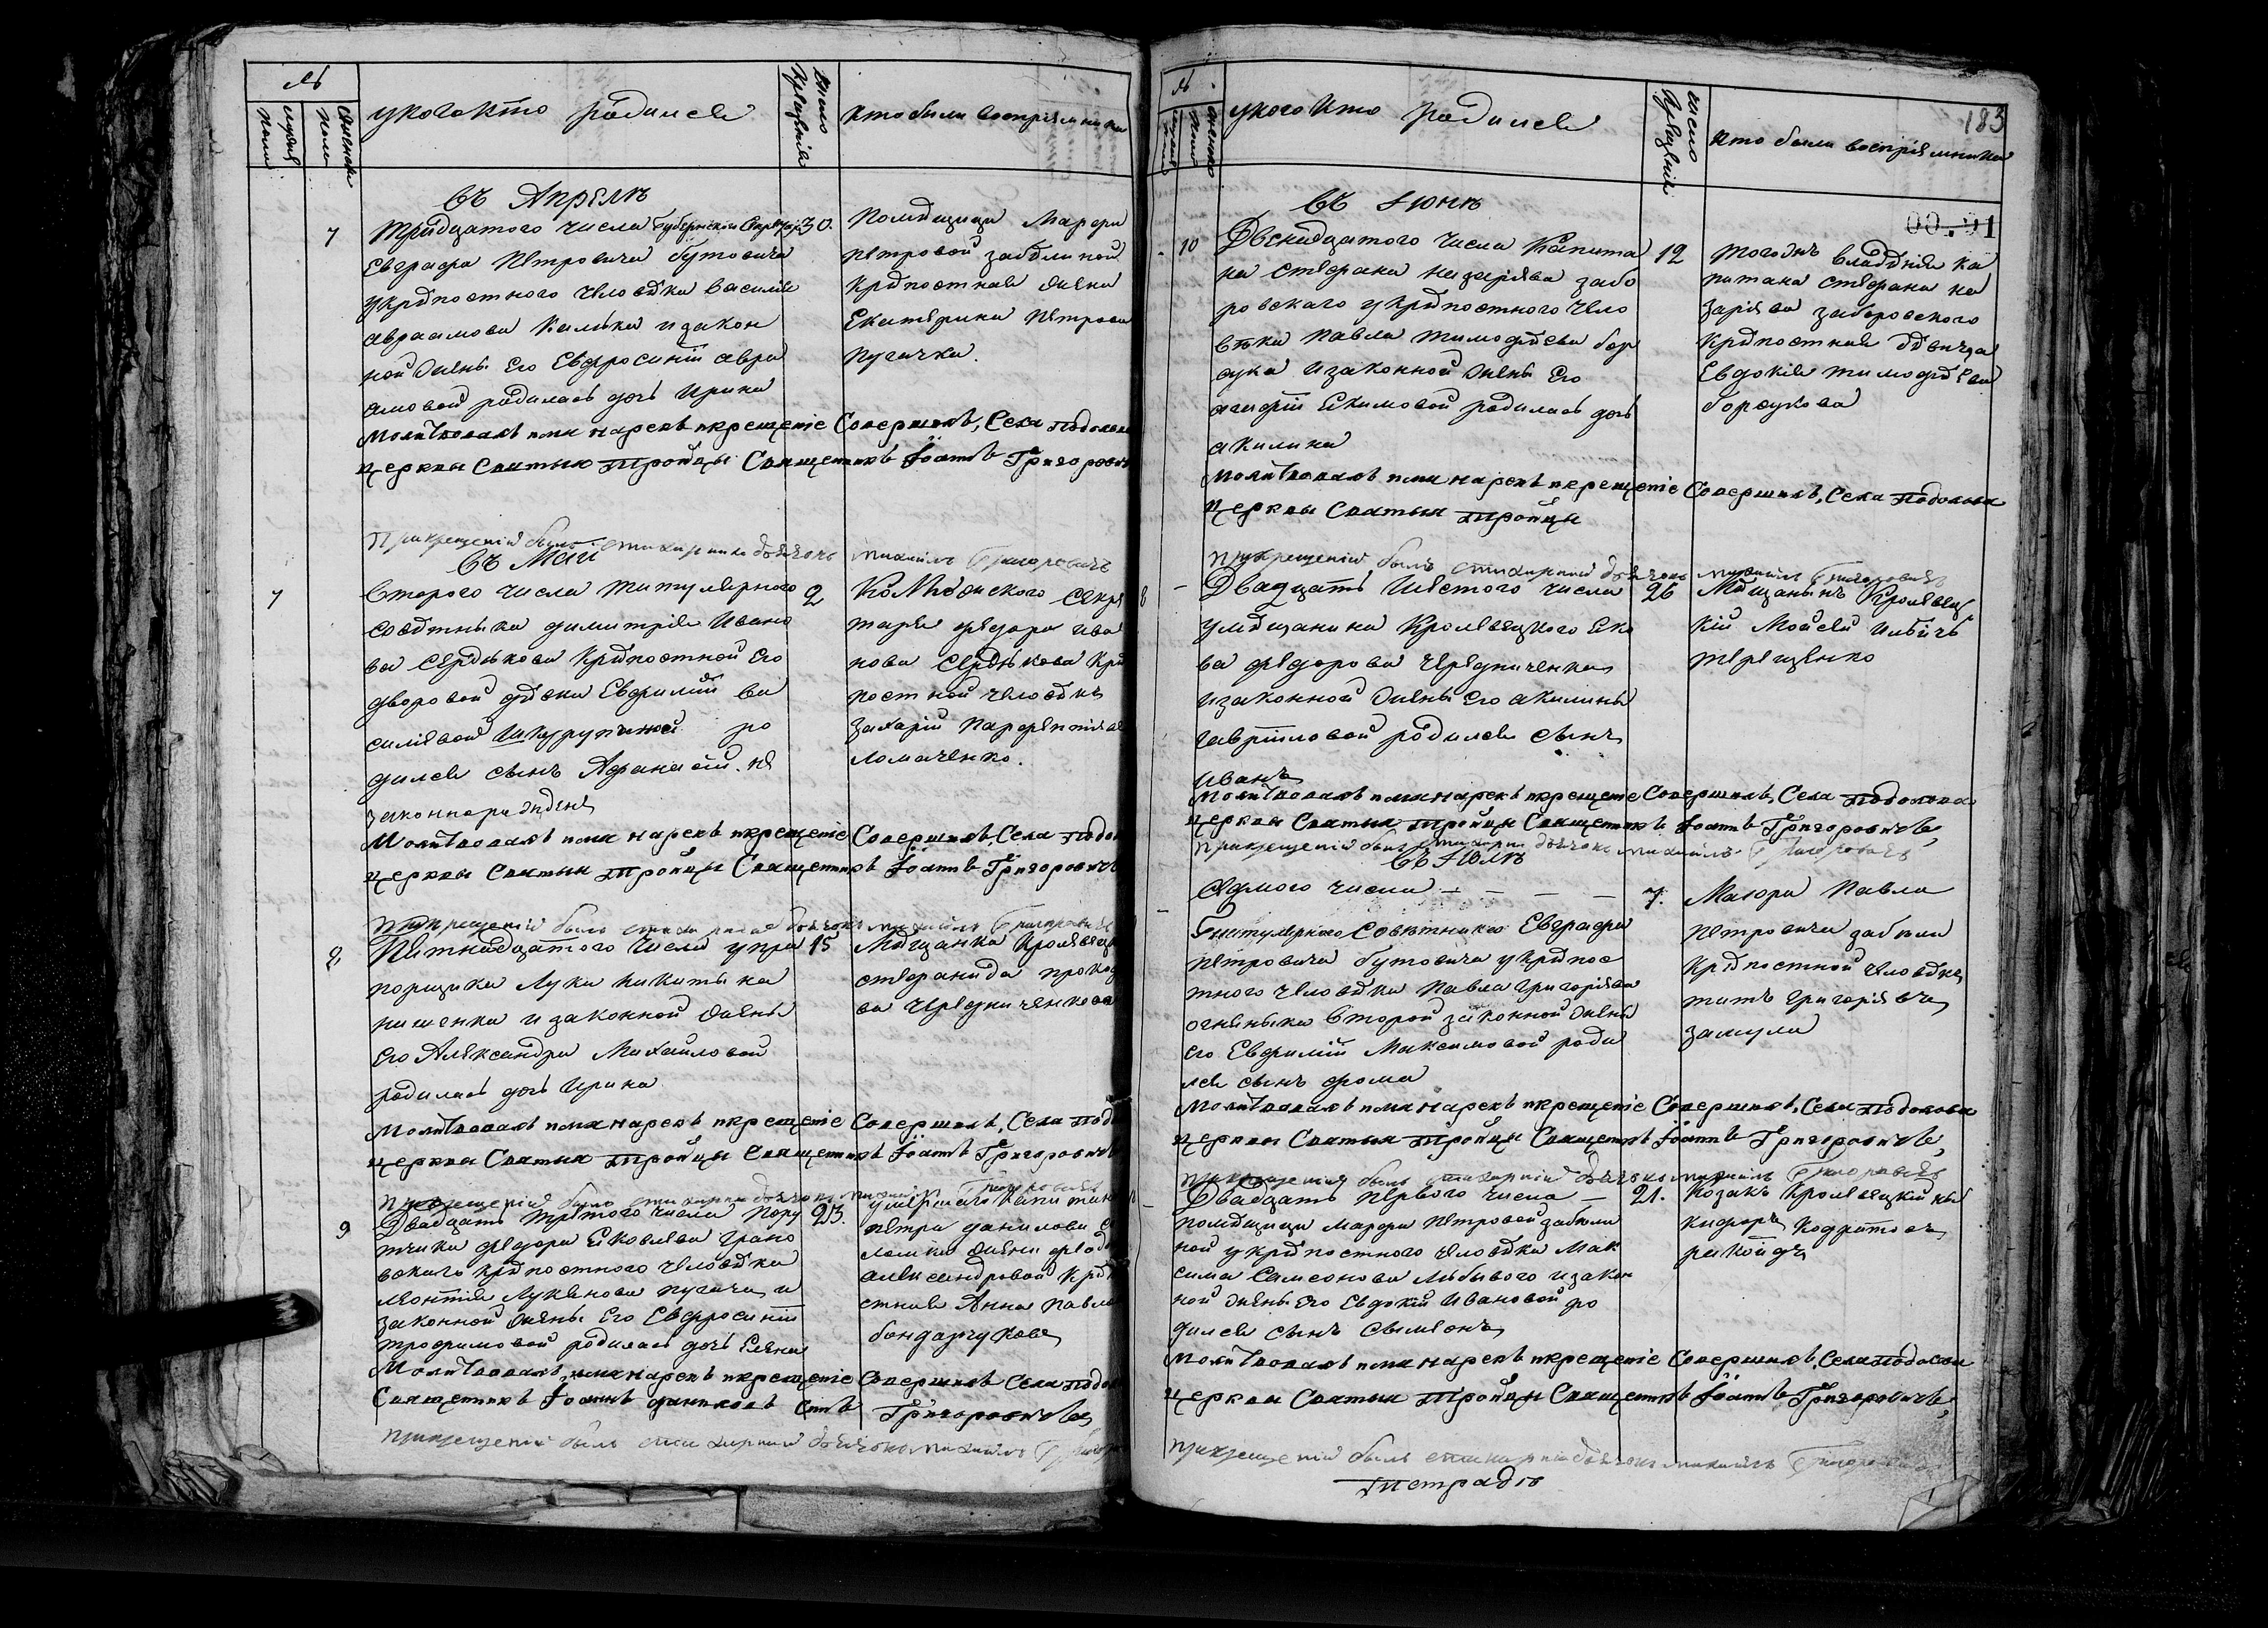 №
мужеска пола
женска пола
у кого кто родился
число крещенія
кто были воспріемники
въ Апрелѣ
7
Тридцатого числа Губернскои Секретаря
30.
Евграфа Петровича бутовича
у крѣпостного человѣка василія
авраамова Калѣки и закон
ной жены его Евфросиніи авра
амовой родилась дочь Ирина
Помѣщици Марфи
Петровой забѣлиной
Крѣпостная жена
Екатерина Петрова
Пугачка.
Молитвовалъ имя нарекъ и крещеніе Совершилъ, Села Подолова
церквы Святыя Тройцы Священникъ Іоаннъ Григоровичъ
При крещеніи былъ стихарный дьячокъ михаилъ Григоровичъ
въ Маи
1
второго числа титулярного
2
совѣтныка димитрія Ивано
ва Сердюкова крѣпостной его
дворовой дѣвки Евфиміи ва
силіевой ро
дился сынъ Афанасій. не
законнорожденъ
Колѣжского секре
таря федора ива
нова Сердюкова Крѣ
постной человѣкъ
захарій Парфентіев
ломаченко.
Молитвовалъ имя нарекъ и крещеніе Совершилъ, Села Подол
церквы Святыя Тройцы Священникъ Іоаннъ Григоровичъ
При крещеніи былъ стихарный дьячокъ михаилъ Григоровичъ
8
Пятнадцатого числа у пра
15
порщика Луки Никиты на
и законной жены
его Александры Михайловой
родилась дочь Ирина
Мѣщанка Кролевец
стефанида проко
ва Чередниченкова
Молитвовалъ имя нарекъ и крещеніе Совершилъ, Села Под
церквы Святыя Тройцы Священникъ Іоаннъ Григоровичъ
При крещеніи былъ стихарный дьячокъ михаилъ Григоровичъ
9
Двадцать третого числа пору
23.
тчика федора Яковлева
вскаго крѣпостного человѣка
леонтія Лукянова пугача и
законной жены его Евфросиніи
трофимовой родилась дочь Елена
умершаго капитан
петра данилова
жены федо
александровой Крѣ
стная Анна Павло
бондарчукова
Молитвовалъ имя нарекъ и крещеніе Совершилъ Села Подол
Священникъ Іоаннъ Григоровичъ
При крещеніи былъ стихарный дьячокъ михаилъ Григоро
№
мужеска пола
женска пола
у кого кто родился
число крещенія
кто были воспріемники
183
00.91
въ Іюнѣ
10
Двенадцатого числа Капита
12
на стефана назаріева забо
ровскаго у крѣпостного чело
вѣка Павла тимофѣева бор
сука и законной жены его
агафіи Екимовой родилась дочь
акилина
того жъ владѣнія ка
питана стефана на
заріева заборовского
крѣпостная дѣвица
Евдокія тимофѣева
борсукова
Молитвовалъ имя нарекъ и крещеніе Совершилъ, Села Подолова
Церквы Святыя Тройцы
При крещеніи былъ стихарный дьячокъ михаилъ Григоровичъ
8
Двадцать шестого числа
26
у мѣщанина Кролевецкого Яко
ва федорова Чередниченка
и законной жены его акилины
гавріиловой родился сынъ
Иванъ
Мѣщанынъ Кролевец
кій Мойсей
терещенко
Молитвовалъ имя нарекъ и крещеніе Совершилъ, Села Подолова
церквы Святыя Тройцы Священникъ Іоаннъ Григоровичъ
При крещеніи былъ стихарный дьячокъ михаилъ Григоровичъ
въ Іюлѣ
Седмого числа
7.
Титулярного Совѣтника Евграфа
Петровича бутовича у крѣпос
тного человѣка Павла григоріева
второй законной жены
его Евфиміи Максимовой роди
лся сынъ фома
Маюра Павла
Петровича забѣли
крѣпостной человѣкъ
титъ григоріевъ
Молитвовалъ имя нарекъ и крещеніе Совершилъ, Села Подолова
церквы Святыя Тройцы Священникъ Іоаннъ Григоровичъ
При крещеніи былъ стихарный дьячокъ михаилъ Григоровичъ
Двадцать первого числа
21.
помѣщици марфи Петровой забѣли
ной у крѣпостного человѣка Мак
сима Самсонова и закон
ной жены его Евдокіи Ивановой ро
дился сынъ Сымеонъ
Козакъ Кролевецкій ны
кифоръ
Молитвовалъ имя нарекъ и крещеніе Совершилъ, Села Подолова
церквы Святыя Тройцы Священникъ Іоаннъ Григоровичъ
При крещеніи былъ стихарный дьячокъ михаилъ Григоровичъ
Тетрадь